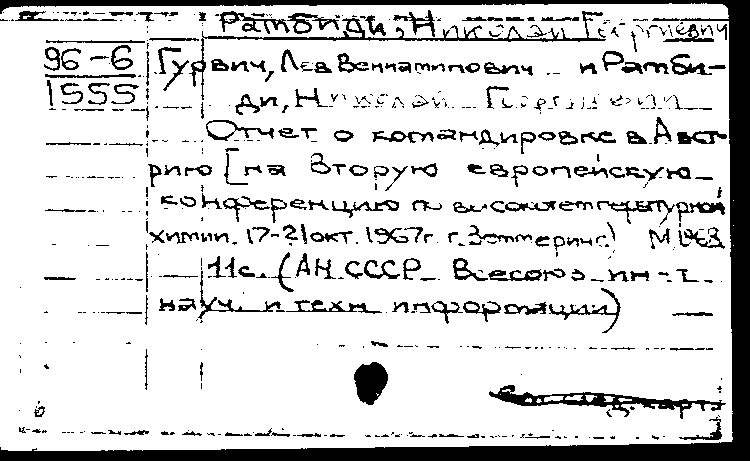 Рамбиди, Николай Георгиевич
96-6
1555
Гурвич, Лев Вениаминович и Рамби-
ди, Николай Георгиевич
Отчет о командировке в Авст-
рию [на Вторую европейскую
конференцию по высокотемпературной
химии. 17-21 окт. 1967г. г. Земмеринг) М 1968
11с. (АН СССР Всесоюз ин-т
науч. и техн информации)
См след. карт.
6